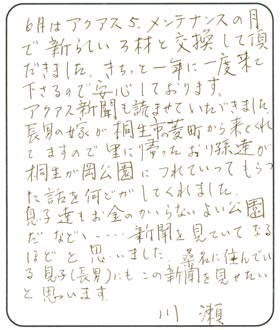 6月はアクアス5.メンテナンスの月
で新らしいろ材と交換して頂
だきました、きちっと一年に一度来て
下さるので安心しております。
アクアス新聞も読ませていただきました
長男の嫁が桐生市菱町から来てくれ
てますので里に帰ったおり孫達が
桐生が岡公園につれていってもらっ
た話を何どかしてくれました。
息子達もお金のかゝらないよい公園
だなど、……新聞を見ていてなる
ほどと思いました、桑名に住んでい
る息子(長男)にもこの新聞を見せたい
と思います。
川瀬